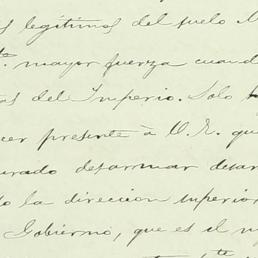 s legítimos del suelo
mayor fuerza cuand
os del Imperio. Solo
cer presente à V. E. qu
urado desarmar desar
o la direccion superior
Gobierno, que es el